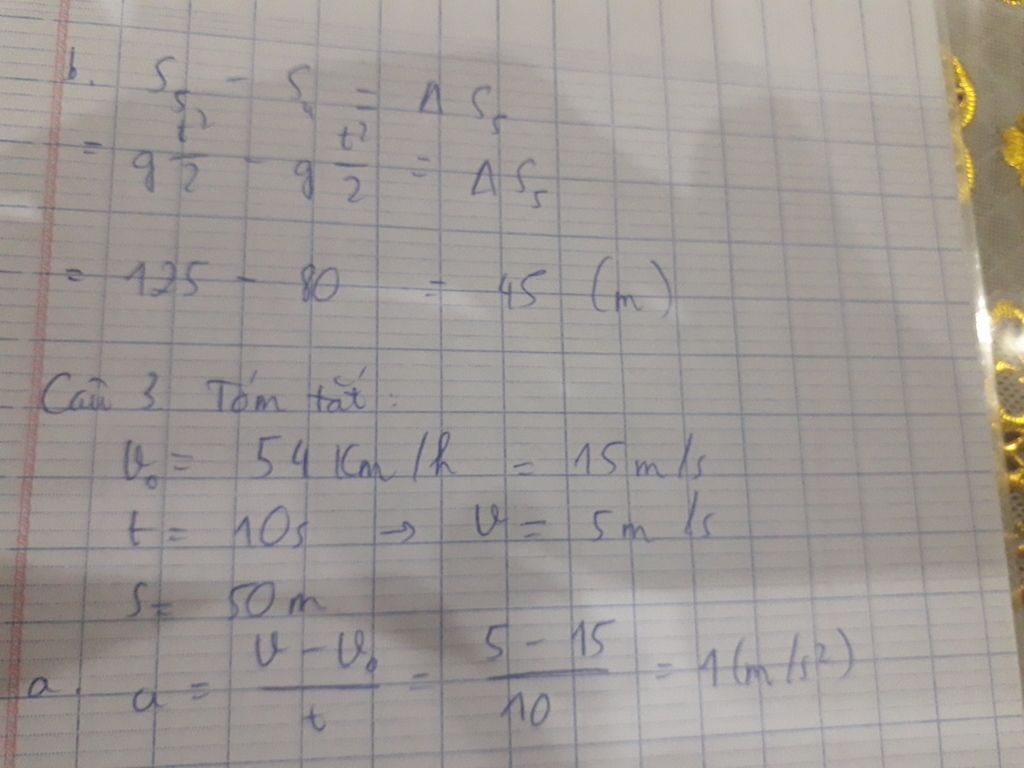 b. S₅ - S₄ = Δ S₅
= g t²/2 - g t²/2 = Δ S₅
= 125 - 80 = 45 (m)
Câu 3 Tóm tắt:
v₀ = 54 Km/h = 15 m/s
t = 10s → v = 5 m/s
S = 50 m
a. a = (v - v₀)/t = (5 - 15)/10 = 1 (m/s²)